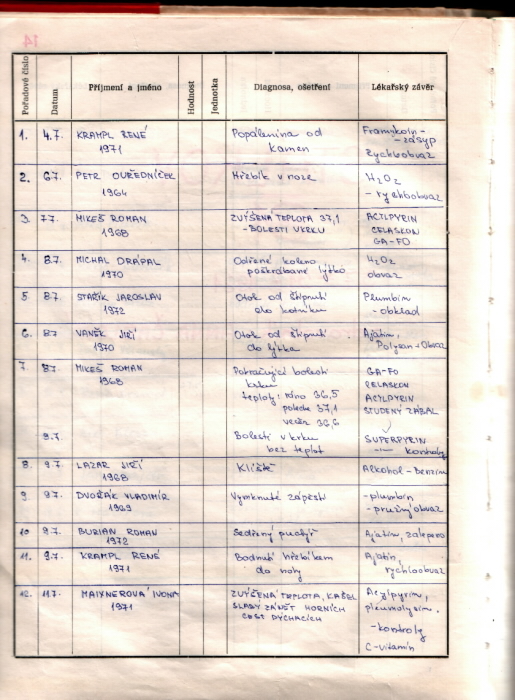 14
Pořadové číslo Datum Příjmení a jméno Hodnost Jednotka Diagnosa, ošetření Lékařský závěr
1. 4.7. KRAMPL RENÉ Popálenina od Framykoin-
1971 kamen - zásyp
Rychloobvaz
2. 6.7. PETR OUŘEDNÍČEK Hřebík v noze H2O2
1964 - rychloobvaz
3. 7.7. MIKEŠ ROMAN ZVÝŠENÁ TEPLOTA 37,1 ACYLPYRIN
1968 - BOLESTI V KRKU CELASKON
GA-FO
4. 8.7. MICHAL DRÁPAL Odřené koleno H2O2
1970 poškrábané lýtko obvaz
5 8.7 STAŘÍK JAROSLAV Otok od štípnutí Plumbin
1972 do kotníku - obklad
6. 8.7 VANĚK JIŘÍ Otok od štípnutí Ajatin,
1970 do lýtka Polysan + Obvaz
7. 8.7. MIKEŠ ROMAN Pokračující bolesti GA-FO
1968 krku CELASKON
teploty: ráno 36,5 ACYLPYRIN
poledne 37,1 STUDENÝ ZÁBAL
večer 36,6
9.7. Bolesti v krku SUPERPYRIN
bez teplot - kontroly
8. 9.7. LAZAR JIŘÍ Klíště Alkohol - Benzin
1968
9. 9.7. DVOŘÁK VLADIMÍR Vymknuté zápěstí - plumbin
1969 - pružný obvaz
10 9.7. BURIAN ROMAN Sedřený puchýř Ajatin, zalepeno
1972
11. 9.7. KRAMPL RENÉ Bodnutí hřebíkem Ajatin,
1971 do nohy rychloobvaz
12. 11.7. MAIXNEROVÁ IVONA ZVÝŠENÁ TEPLOTA, KAŠEL Acylpyrin,
1971 SLABÝ ZÁNĚT HORNÍCH pleumolysin.
CEST DÝCHACÍCH
- kontroly
C-vitamin